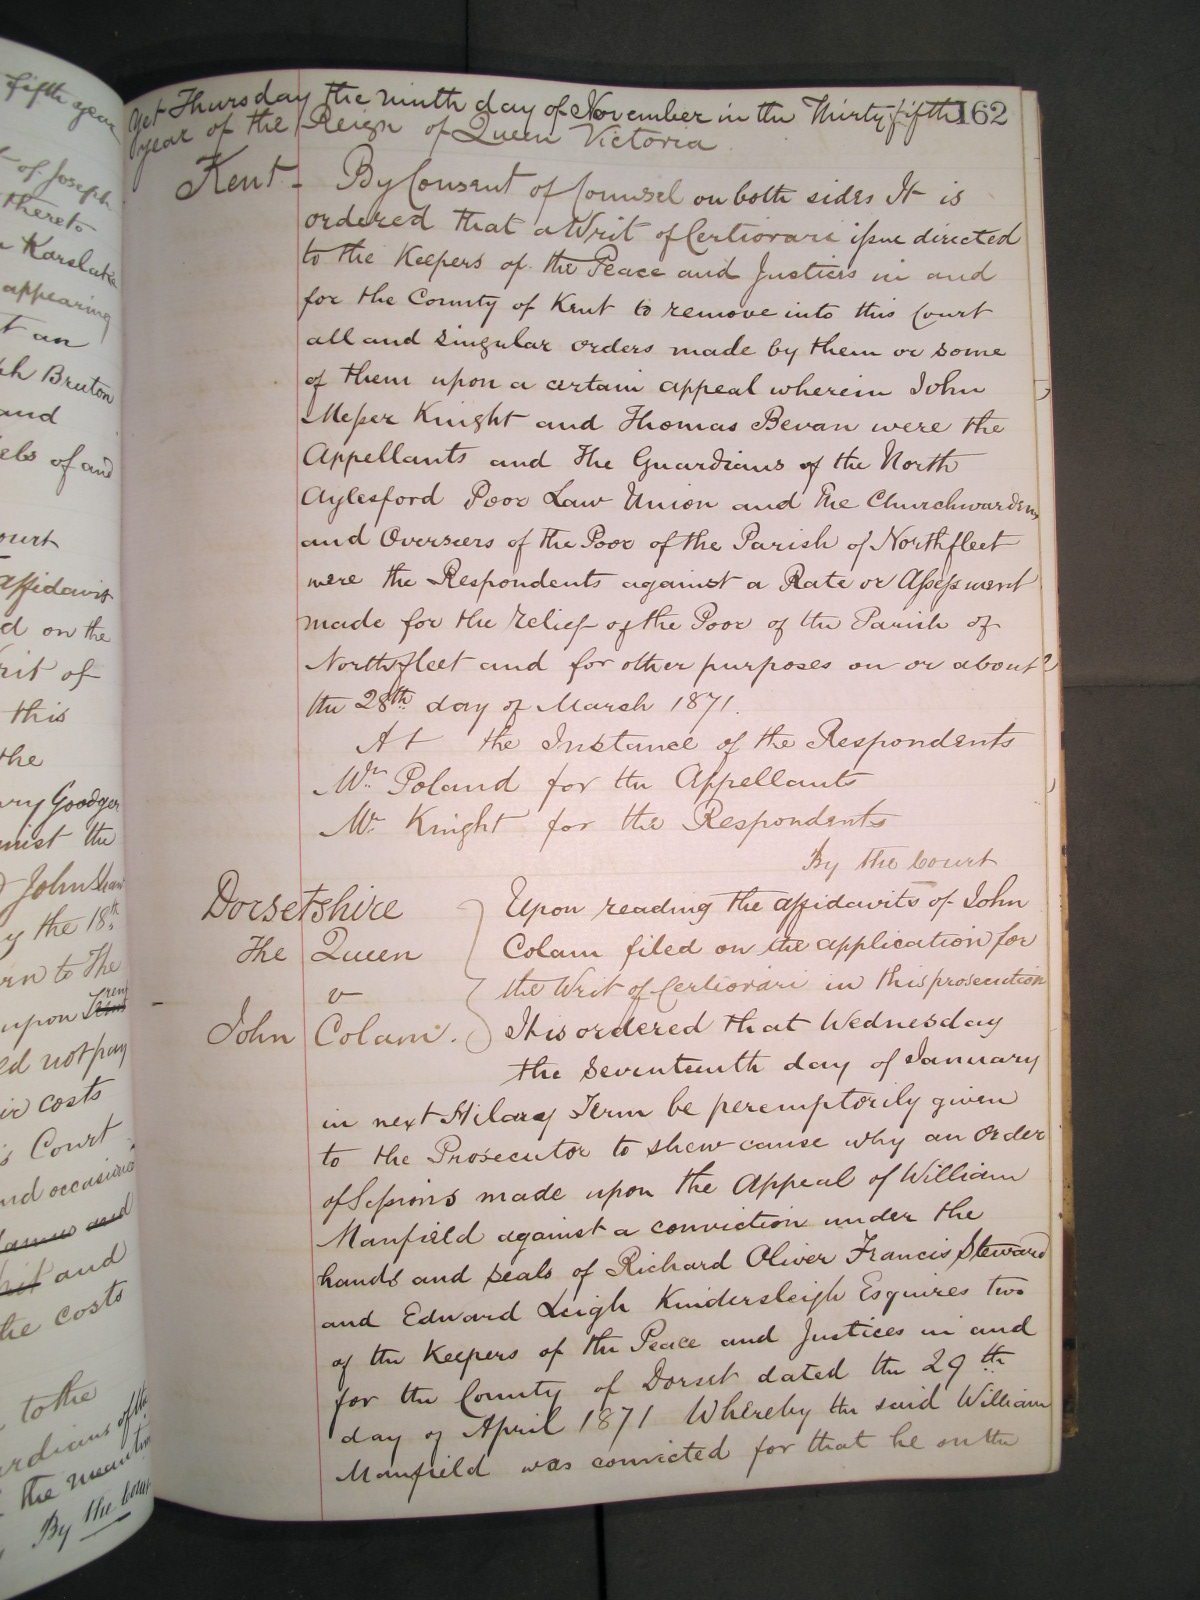 fifth year
t of Joseph
thereto
Karslake
appearing
t an
ph Bruton
and
els of and
ourt
affidavit
d on the
rit of
this
the
ry Goodger
ainst the
John Shaw
y the 18th
rn to The
upon
ld not pay
ir costs
s Court
and occasioned
and
and
the costs
to the
ardians of the
the meantime
By the Court
Yet Thursday the ninth day of November in the Thirty fifth 162
year of the Reign of Queen Victoria
Kent - By Consent of Counsel on both sides It is
ordered that a Writ of Certiorari issue directed
to the Keepers of the Peace and Justices in and
for the County of Kent to remove into this Court
all and singular orders made by them or some
of them upon a certain appeal wherein John
Messer Knight and Thomas Bevan were the
Appellants and The Guardians of the North
Aylesford Poor Law Union and the Churchwardens
and Overseers of the Poor of the Parish of Northfleet
were the Respondents against a Rate or Assessment
made for the relief of the Poor of the Parish of
Northfleet and for other purposes on or about
the 28th day of March 1871.
At the Instance of the Respondents
Mr. Poland for the Appellants
Mr. Knight for the Respondents
By the Court
Dorsetshire
The Queen
v
John Colam.
Upon reading the affidavits of John
Colam filed on the application for
the Writ of Certiorari in this prosecution
It is ordered that Wednesday
the Seventeenth day of January
in next Hilary Term be peremptorily given
to the Prosecutor to shew cause why an Order
of Sessions made upon the Appeal of William
Manfield against a conviction under the
hands and seals of Richard Oliver Francis Steward
and Edward Leigh Kindersleigh Esquires two
of the Keepers of the Peace and Justices in and
for the County of Dorset dated the 29th
day of April 1871 Whereby the said William
Manfield was convicted for that he on the